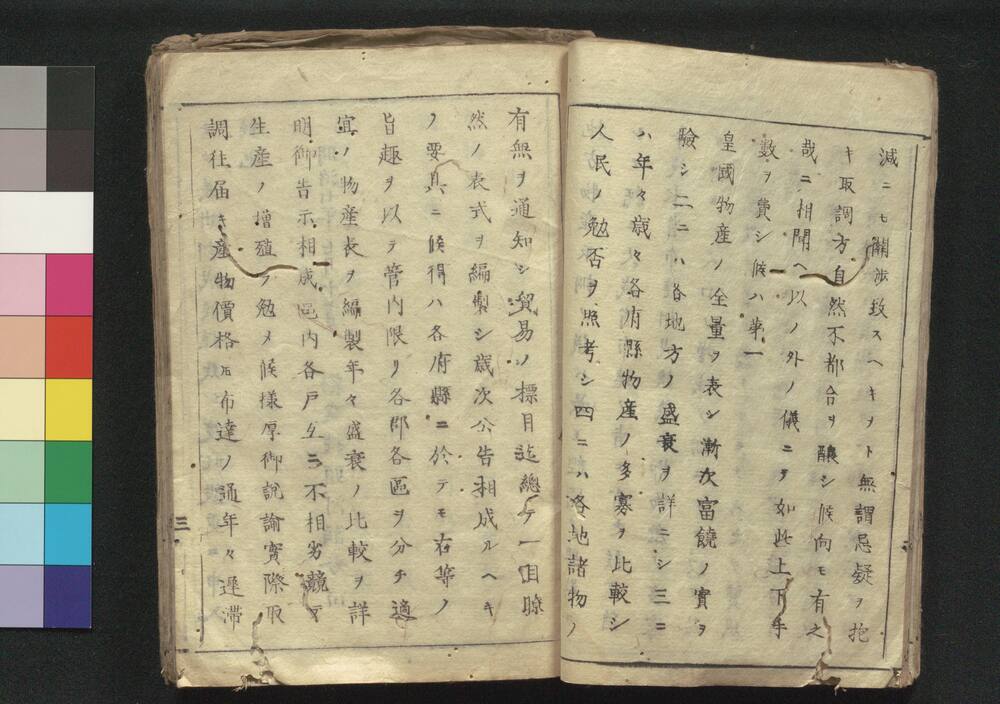 減ニモ關渉致スヘキヲト無謂忌疑ヲ抱
キ取調方自然不都合ヲ釀シ候向モ有之
哉ニ相聞ヘ以ノ外ノ儀ニテ如此上下手
數ヲ費シ候ハ第一
皇國物産ノ全量ヲ表シ漸次富饒ノ實ヲ
驗シ二ニハ各地方ノ盛衰ヲ詳ニシ三ニ
ハ年々歳々各府縣物産ノ多寡ヲ比較シ
人民ノ勉否ヲ照考シ四ニハ各地諸物ノ
有無ヲ通知シ貿易ノ標目迄總テ一目瞭
然ノ表式ヲ編製シ歳次公告相成ルヘキ
ノ要具ニ候得ハ各府縣ニ於テモ右等ノ
旨趣ヲ以テ管内限リ各郡各區ヲ分チ適
宜ノ物産表ヲ編製年々盛衰ノ比較ヲ詳
明御告示相成邑内各戸互ニ不相劣競テ
生産ノ増殖ヲ勉メ候様厚御説諭實際取
調往届キ産物價格モ布達ノ通年々遲滯
三